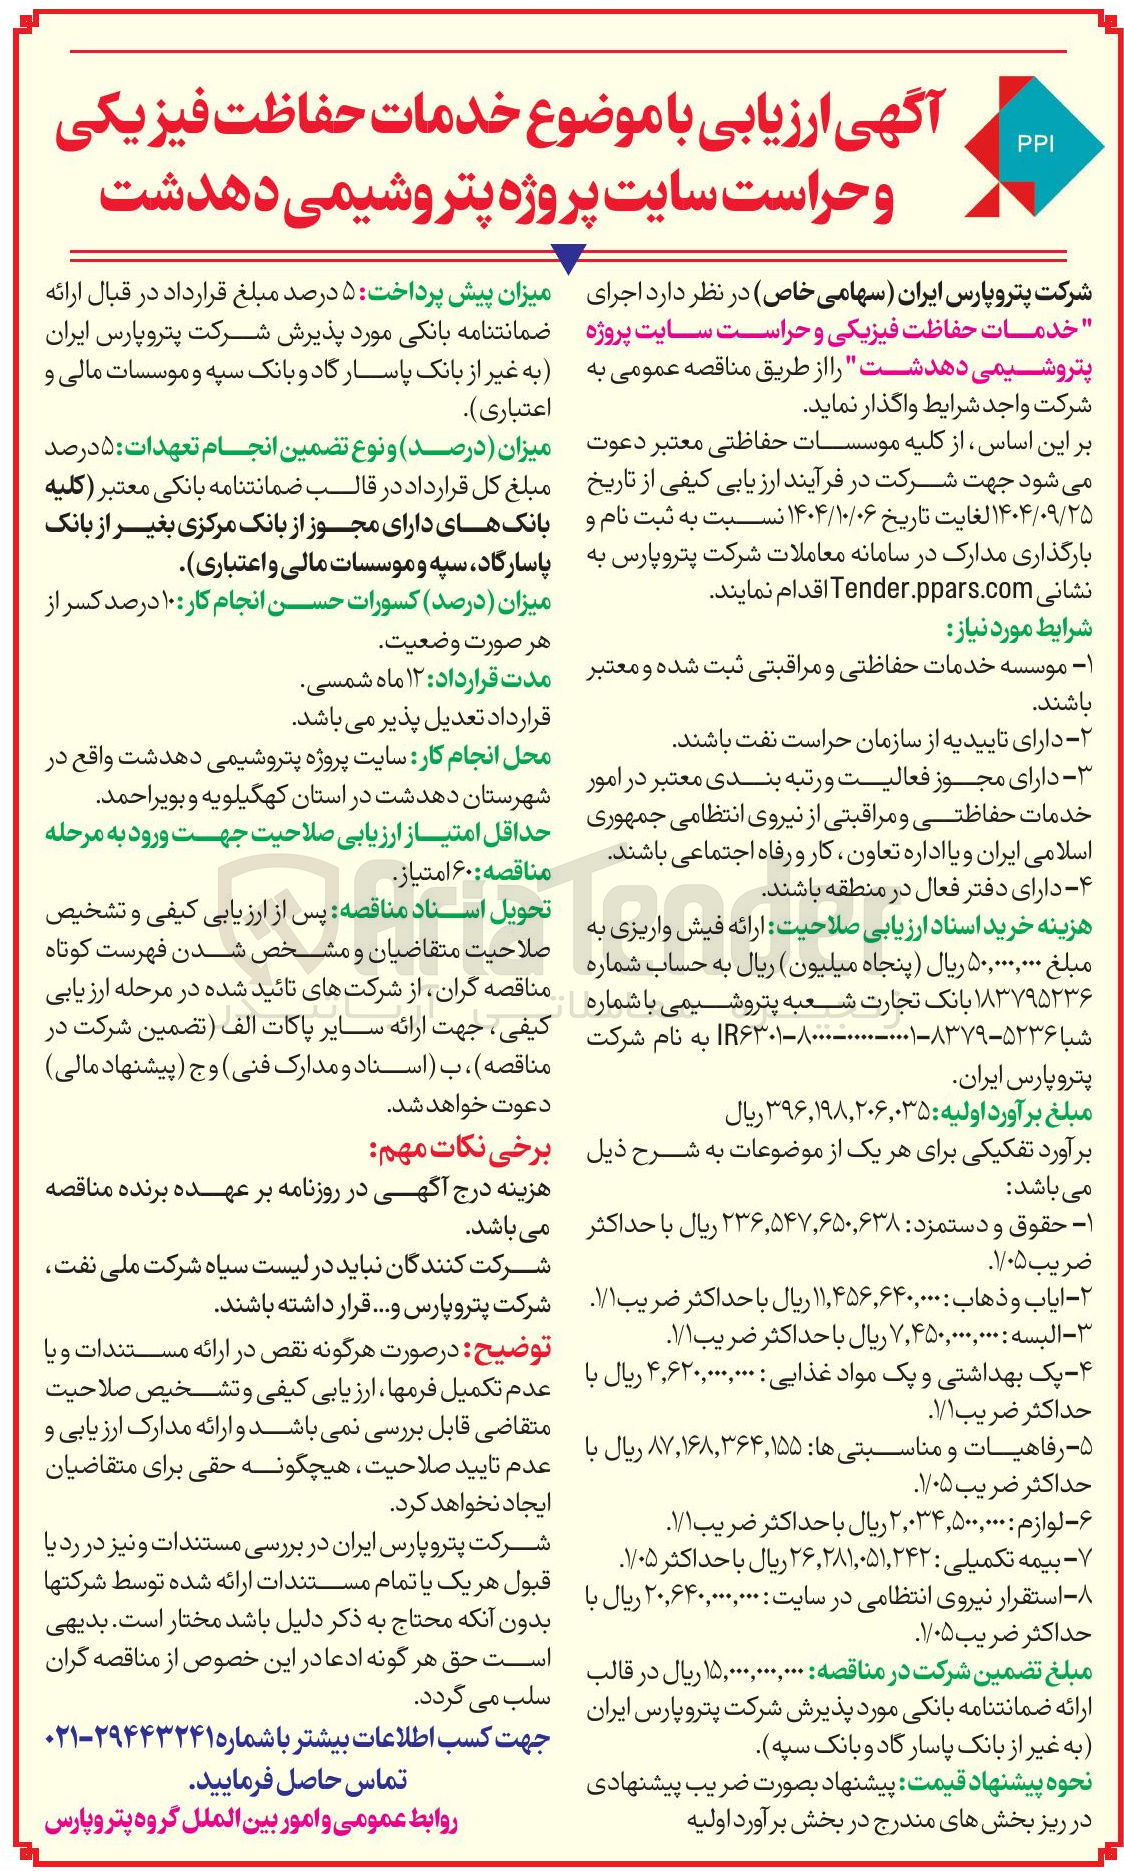 آگهی ارزیابی با موضوع خدمات حفاظت فیزیکی
و حراست سایت پروژه پتروشیمی دهدشت
PPI
شرکت پتروپارس ایران (سهامی خاص) در نظر دارد اجرای
" خدمات حفاظت فیزیکی و حراست سایت پروژه
پتروشیمی دهدشت " را از طریق مناقصه عمومی به
شرکت واجد شرایط واگذار نماید.
بر این اساس، از کلیه موسسات حفاظتی معتبر دعوت
می شود جهت شرکت در فرآیند ارزیابی کیفی از تاریخ
۱۴۰۴/۰۹/۲۵ لغایت تاریخ ۱۴۰۴/۱۰/۰۶ نسبت به ثبت نام و
بارگذاری مدارک در سامانه معاملات شرکت پتروپارس به
نشانی Tender.ppars.com اقدام نمایند.
شرایط مورد نیاز:
۱- موسسه خدمات حفاظتی و مراقبتی ثبت شده و معتبر
باشند.
۲- دارای تاییدیه از سازمان حراست نفت باشند.
۳- دارای مجوز فعالیت و رتبه بندی معتبر در امور
خدمات حفاظتی و مراقبتی از نیروی انتظامی جمهوری
اسلامی ایران و یا اداره تعاون، کار و رفاه اجتماعی باشند.
۴- دارای دفتر فعال در منطقه باشند.
هزینه خرید اسناد ارزیابی صلاحیت: ارائه فیش واریزی به
مبلغ ۵۰,۰۰۰,۰۰۰ ریال (پنجاه میلیون) ریال به حساب شماره
۱۸۳۷۹۵۲۳۶ بانک تجارت شعبه پتروشیمی با شماره
شبا IR۶۳۰۱-۸۰۰۰-۰۰۰۰-۰۰۰۱-۸۳۷۹-۵۲۳۶ به نام شرکت
پتروپارس ایران.
مبلغ برآورد اولیه: ۳۹۶,۱۹۸,۲۰۶,۰۳۵ ریال
برآورد تفکیکی برای هر یک از موضوعات به شرح ذیل
می باشد:
۱- حقوق و دستمزد: ۲۳۶,۵۴۷,۶۵۰,۶۳۸ ریال با حداکثر
ضریب ۱/۰۵.
۲- ایاب و ذهاب: ۱۱,۴۵۶,۶۴۰,۰۰۰ ریال با حداکثر ضریب ۱/۱.
۳- البسه: ۷,۴۵۰,۰۰۰,۰۰۰ ریال با حداکثر ضریب ۱/۱.
۴- پک بهداشتی و پک مواد غذایی: ۴,۶۲۰,۰۰۰,۰۰۰ ریال با
حداکثر ضریب ۱/۱.
۵- رفاهیات و مناسبتی ها: ۸۷,۱۶۸,۳۶۴,۱۵۵ ریال با
حداکثر ضریب ۱/۰۵.
۶- لوازم: ۲,۰۳۴,۵۰۰,۰۰۰ ریال با حداکثر ضریب ۱/۱.
۷- بیمه تکمیلی: ۲۶,۲۸۱,۰۵۱,۲۴۲ ریال با حداکثر ۱/۰۵.
۸- استقرار نیروی انتظامی در سایت: ۲۰,۶۴۰,۰۰۰,۰۰۰ ریال با
حداکثر ضریب ۱/۰۵.
مبلغ تضمین شرکت در مناقصه: ۱۵,۰۰۰,۰۰۰,۰۰۰ ریال در قالب
ارائه ضمانتنامه بانکی مورد پذیرش شرکت پتروپارس ایران
(به غیر از بانک پاسارگاد و بانک سپه).
نحوه پیشنهاد قیمت: پیشنهاد بصورت ضریب پیشنهادی
در ریز بخش های مندرج در بخش برآورد اولیه
میزان پیش پرداخت: ۵ درصد مبلغ قرارداد در قبال ارائه
ضمانتنامه بانکی مورد پذیرش شرکت پتروپارس ایران
(به غیر از بانک پاسارگاد و بانک سپه و موسسات مالی و
اعتباری).
میزان (درصد) و نوع تضمین انجام تعهدات: ۵ درصد
مبلغ کل قرارداد در قالب ضمانتنامه بانکی معتبر (کلیه
بانک های دارای مجوز از بانک مرکزی بغیر از بانک
پاسارگاد، سپه و موسسات مالی و اعتباری).
میزان (درصد) کسورات حسن انجام کار: ۱۰ درصد کسر از
هر صورت وضعیت.
مدت قرارداد: ۱۲ ماه شمسی.
قرارداد تعدیل پذیر می باشد.
محل انجام کار: سایت پروژه پتروشیمی دهدشت واقع در
شهرستان دهدشت در استان کهگیلویه و بویراحمد.
حداقل امتیاز ارزیابی صلاحیت جهت ورود به مرحله
مناقصه: ۶۰ امتیاز.
تحویل اسناد مناقصه: پس از ارزیابی کیفی و تشخیص
صلاحیت متقاضیان و مشخص شدن فهرست کوتاه
مناقصه گران، از شرکت های تائید شده در مرحله ارزیابی
کیفی، جهت ارائه سایر پاکات الف (تضمین شرکت در
مناقصه)، ب (اسناد و مدارک فنی) و ج (پیشنهاد مالی)
دعوت خواهد شد.
برخی نکات مهم:
هزینه درج آگهی در روزنامه بر عهده برنده مناقصه
می باشد.
شرکت کنندگان نباید در لیست سیاه شرکت ملی نفت،
شرکت پتروپارس و... قرار داشته باشند.
توضیح: درصورت هرگونه نقص در ارائه مستندات و یا
عدم تکمیل فرمها، ارزیابی کیفی و تشخیص صلاحیت
متقاضی قابل بررسی نمی باشد و ارائه مدارک ارزیابی و
عدم تایید صلاحیت، هیچگونه حقی برای متقاضیان
ایجاد نخواهد کرد.
شرکت پتروپارس ایران در بررسی مستندات و نیز در رد یا
قبول هر یک یا تمام مستندات ارائه شده توسط شرکتها
بدون آنکه محتاج به ذکر دلیل باشد مختار است. بدیهی
است حق هر گونه ادعا در این خصوص از مناقصه گران
سلب می گردد.
جهت کسب اطلاعات بیشتر با شماره ۲۹۴۴۳۲۴۱-۰۲۱
تماس حاصل فرمایید.
روابط عمومی و امور بین الملل گروه پتروپارس
AriaTender